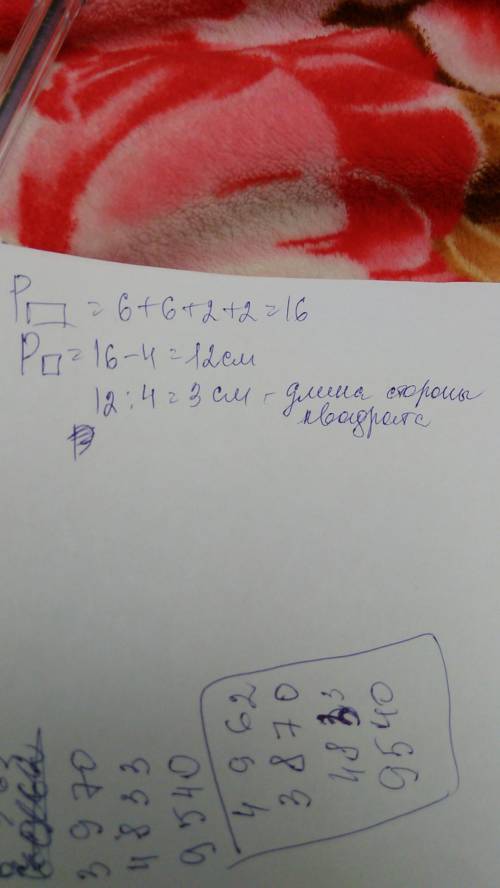 P▭ = 6+6+2+2=16
P□ = 16-4=12см
12:4=3см - длина стороны
квадрата
3 9 70
4 8 3 3
9 5 40
4 9 62
3 8 7 0
48 3 3
9 5 40